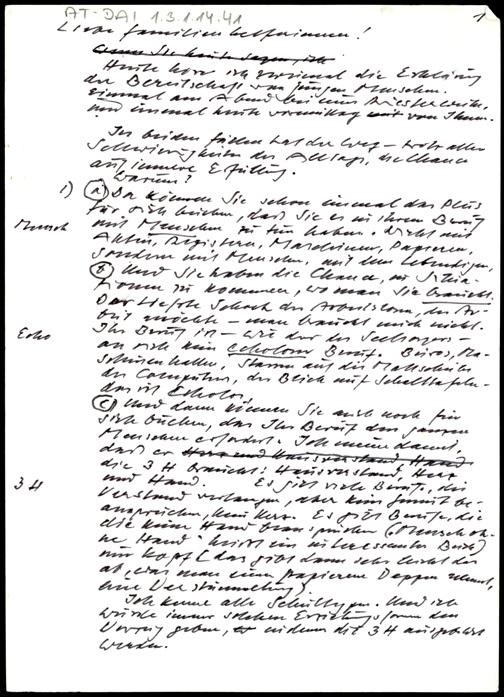 AT-DAI 1.3.1.14.41
1
Liebe Familienhelferinnen!
Wenn Sie heute sagen, ich
Heute höre ich zweimal die Erklärung
der Bereitschaft von jungen Menschen.
Einmal am Abend bei einer Priesterweihe,
und einmal heute vormittag mit von Ihnen.
In beiden Fällen hat der Weg – trotz aller
Schwierigkeiten des Alltags, die Chance
auf innere Erfüllung.
Warum?
1) (a) Da können Sie schon einmal das Plus
für sich buchen, daß Sie es in Ihrem Beruf
Mensch
mit Menschen zu tun haben. Nicht mit
Akten, Registern, Maschinen, Papieren,
sondern mit Menschen, mit dem Lebendigen.
(b) Und Sie haben die Chance, in Situa-
tionen zu kommen, wo man Sie braucht.
Der tiefste Schock des Arbeitslosen, der Ar-
beit möchte – man braucht mich nicht.
Echo
Ihr Beruf ist – wie der des Seelsorgers –
an sich kein echoloser Beruf. Büros, Ma-
schinenhallen, Starren auf die Mattscheibe
des Computers, der Blick auf Schalttafeln –
das ist Echolos.
(c) Und dann können Sie auch noch für
sich buchen, das Ihr Beruf den ganzen
Menschen erfordert. Ich meine damit,
daß er Herz und Hausverstand Hand
die 3 H braucht: Hausverstand, Herz
3 H
und Hand. Es gibt viele Berufe, die
Verstand verlangen, aber kein Gemüt be-
anspruchen, kein Herz. Es gibt Berufe, die
die keine Hand beanspruchen („Mensch oh-
ne Hand" heißt ein interessantes Buch)
nur Kopf (das gibt dann sehr leicht das
ab, was man einen papierenen Deppen nennt,
eine Verstümmelung).
Ich kenne alle Schultypen. Und ich
würde immer solchen Erziehungsformen den
Vorzug geben, in denen die 3 H ausgebildet
werden.